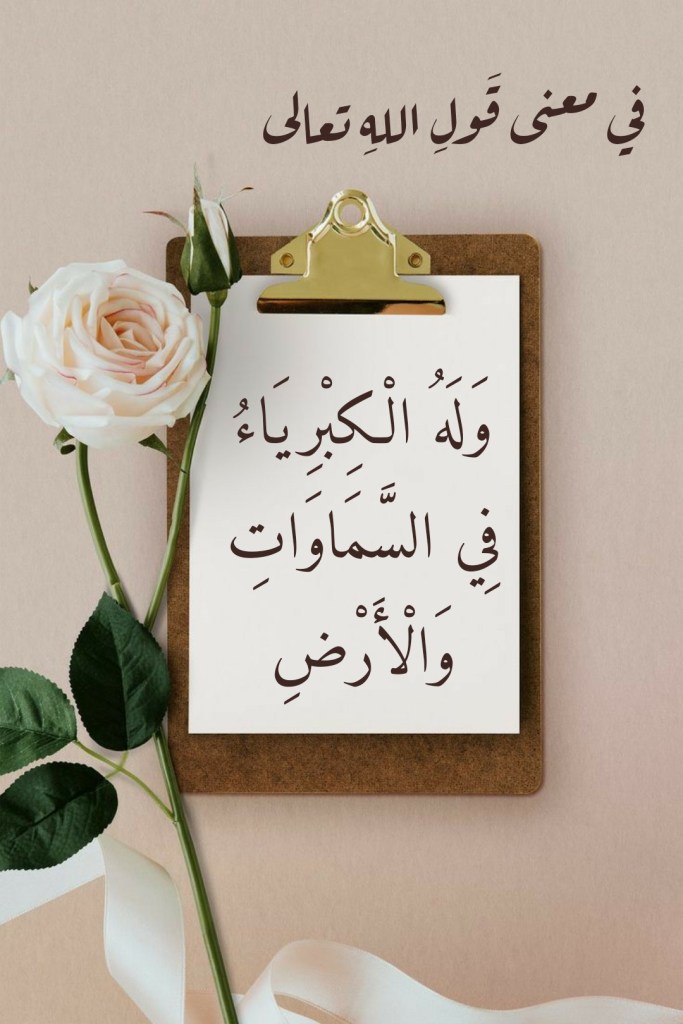 في معنى قَولِ اللهِ تعالى
وَلَهُ الْكِبْرِيَاءُ
فِي السَّمَاوَاتِ
وَالْأَرْضِ